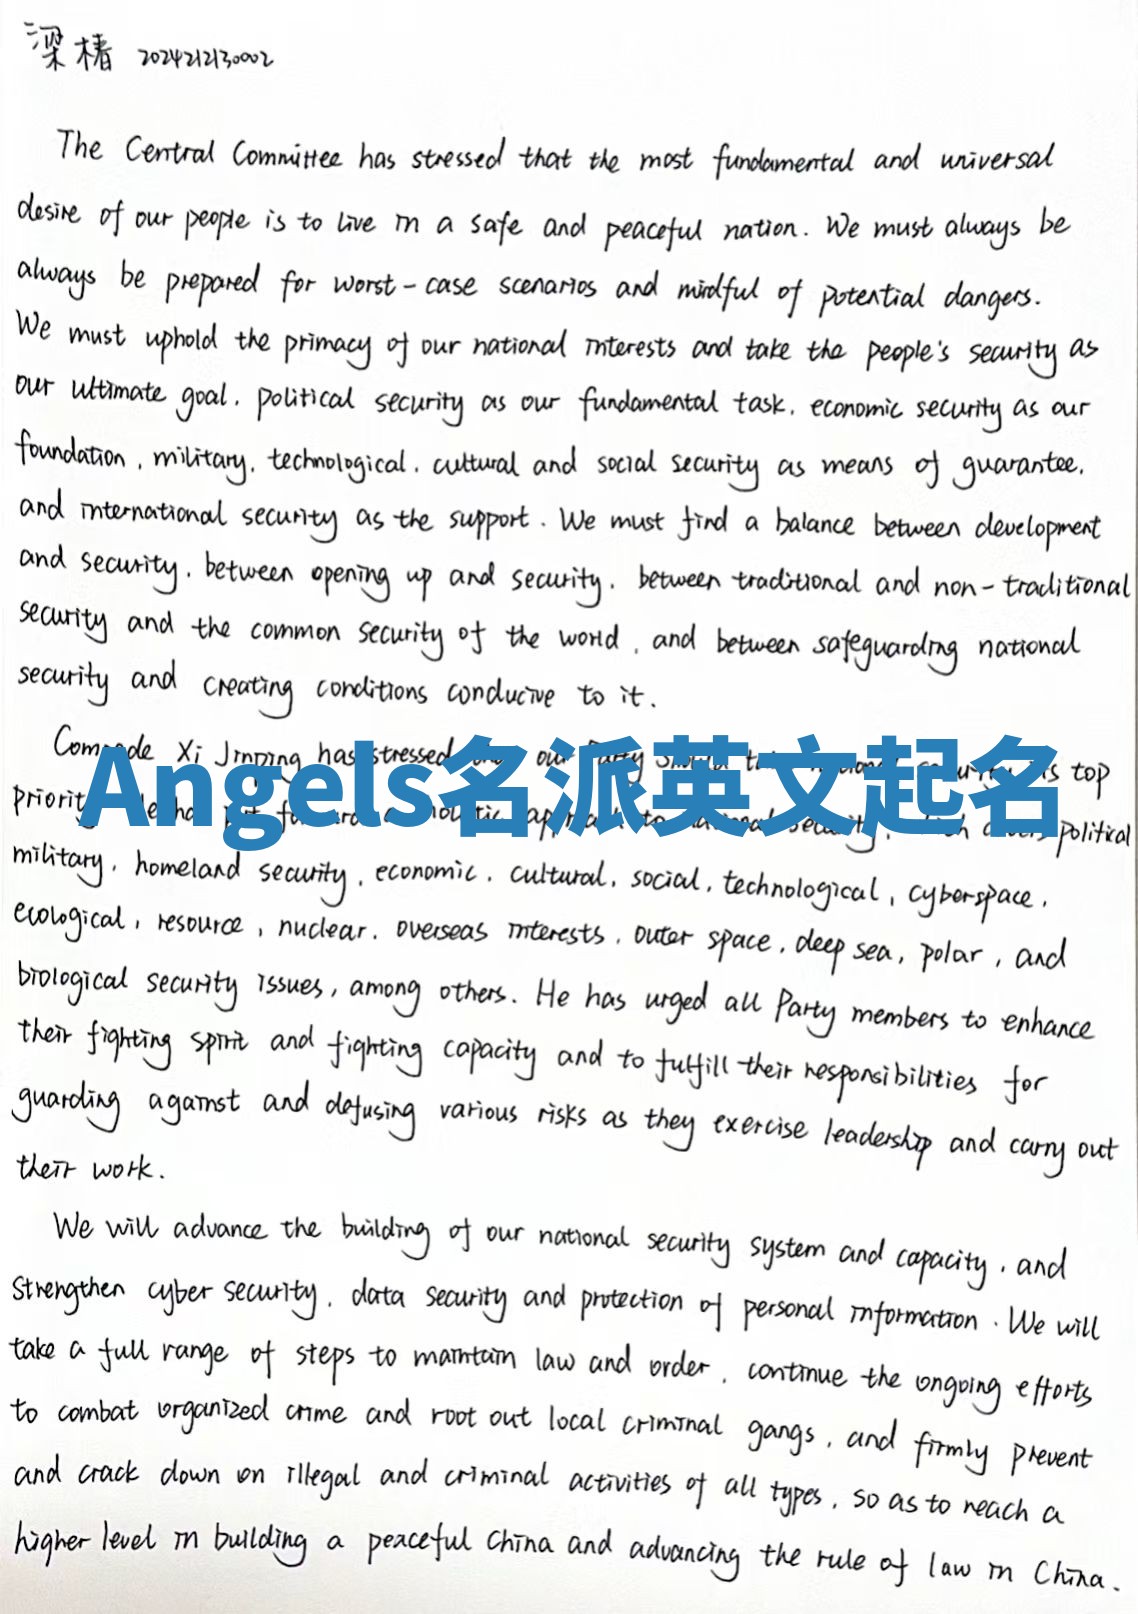 梁椿 2024212130002
The Central Committee has stressed that the most fundamental and universal
desire of our people is to live in a safe and peaceful nation. We must always be
always be prepared for worst-case scenarios and mindful of potential dangers.
We must uphold the primacy of our national interests and take the people's security as
our ultimate goal, political security as our fundamental task, economic security as our
foundation, military, technological, cultural and social security as means of guarantee,
and international security as the support. We must find a balance between development
and security, between opening up and security, between traditional and non-traditional
security and the common security of the world, and between safeguarding national
security and creating conditions conducive to it.
Xi Jinping has stressed our Party top
Angels名派英文起名
political
military, homeland security, economic, cultural, social, technological, cyberspace,
ecological, resource, nuclear, overseas interests, outer space, deep sea, polar, and
biological security issues, among others. He has urged all Party members to enhance
their fighting spirit and fighting capacity and to fulfill their responsibilities for
guarding against and defusing various risks as they exercise leadership and carry out
their work.
We will advance the building of our national security system and capacity, and
strengthen cyber security, data security and protection of personal information. We will
take a full range of steps to maintain law and order, continue the ongoing efforts
to combat organized crime and root out local criminal gangs, and firmly prevent
and crack down on illegal and criminal activities of all types, so as to reach a
higher level in building a peaceful China and advancing the rule of law in China.